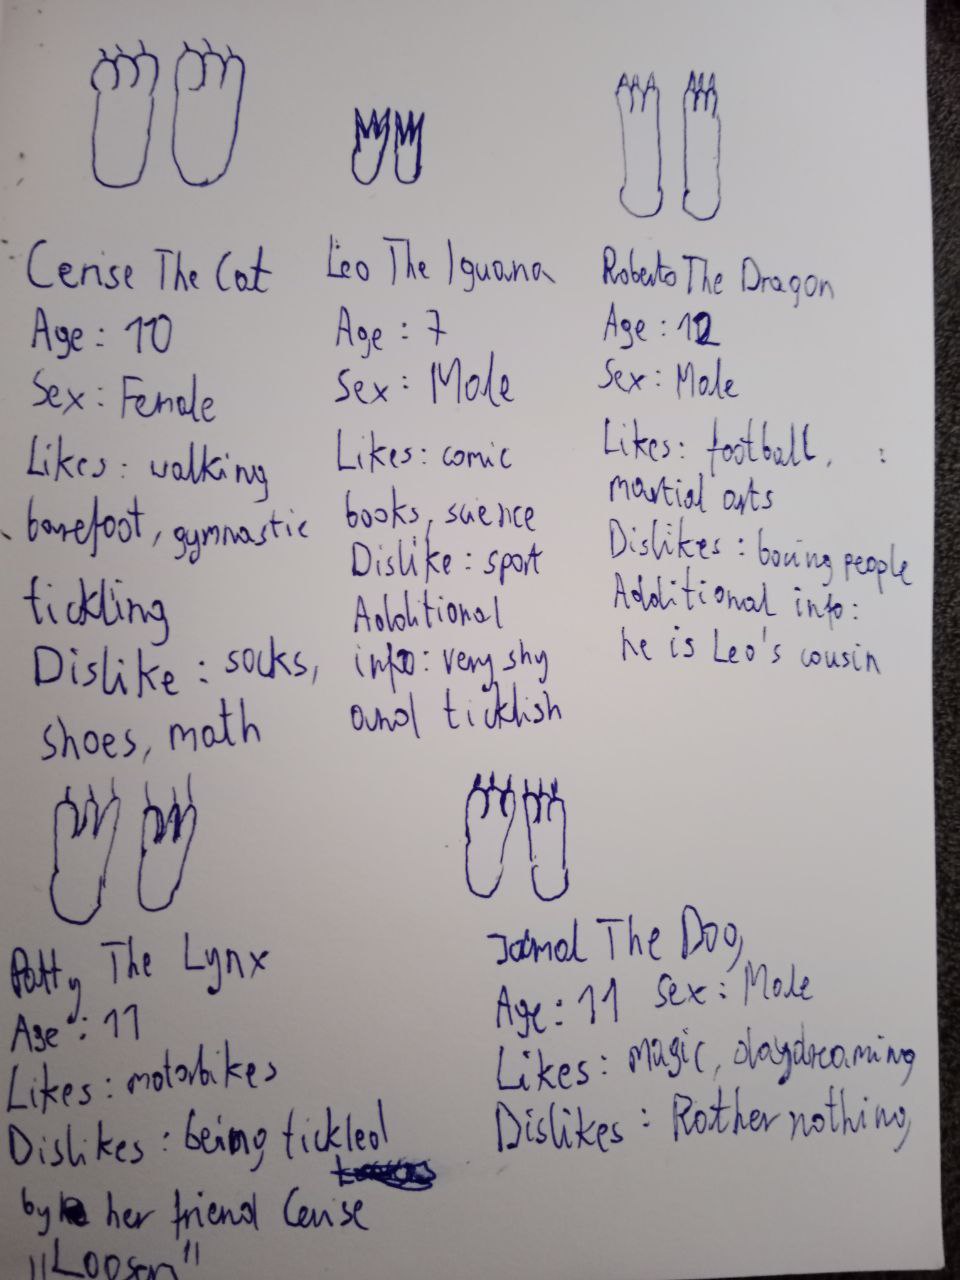 Cerise The Cat
Age: 10
Sex: Female
Likes: walking
barefoot, gymnastic
tickling
Dislike: socks,
shoes, math
Leo The Iguana
Age: 7
Sex: Male
Likes: comic
books, science
Dislike: sport
Additional
info: very shy
and ticklish
Roberto The Dragon
Age: 12
Sex: Male
Likes: football,
martial arts
Dislikes: boring people
Additional info:
he is Leo's cousin
Patty The Lynx
Age: 11
Likes: motorbikes
Dislikes: being tickled
by her friend Cerise
Jamal The Dog
Age: 11 Sex: Male
Likes: magic, daydreaming
Dislikes: Rather nothing